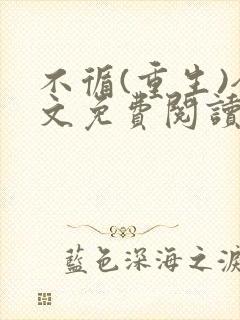 不循(重生)
文免費閱讀
藍色深海之淚